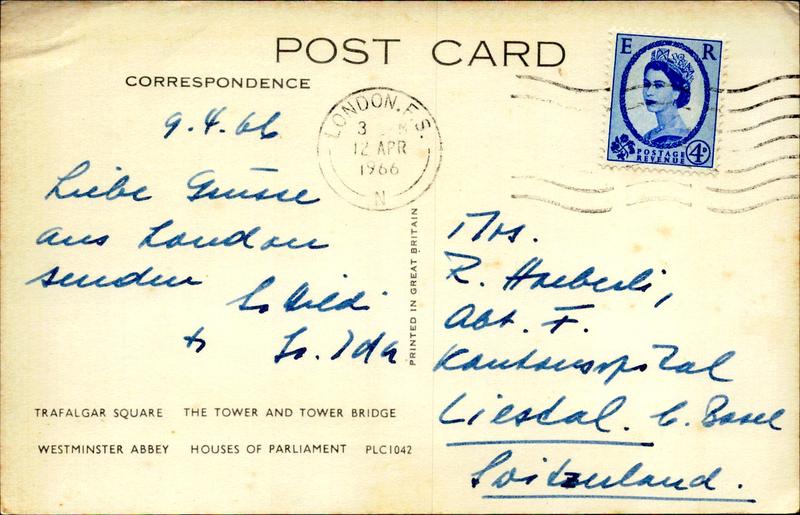 POST CARD
CORRESPONDENCE
9.4.66
Liebe Grüsse
aus London
senden
Sr. Heidi
+ Sr. Ida
TRAFALGAR SQUARE THE TOWER AND TOWER BRIDGE
WESTMINSTER ABBEY HOUSES OF PARLIAMENT PLC1042
PRINTED IN GREAT BRITAIN
LONDON. F.S.
3 PM
12 APR
1966
N
E R
POSTAGE
REVENUE
4D
Mrs.
R. Haeberli,
Abt. F.
Kantonsspital
Liestal. b. Basel
Switzerland.